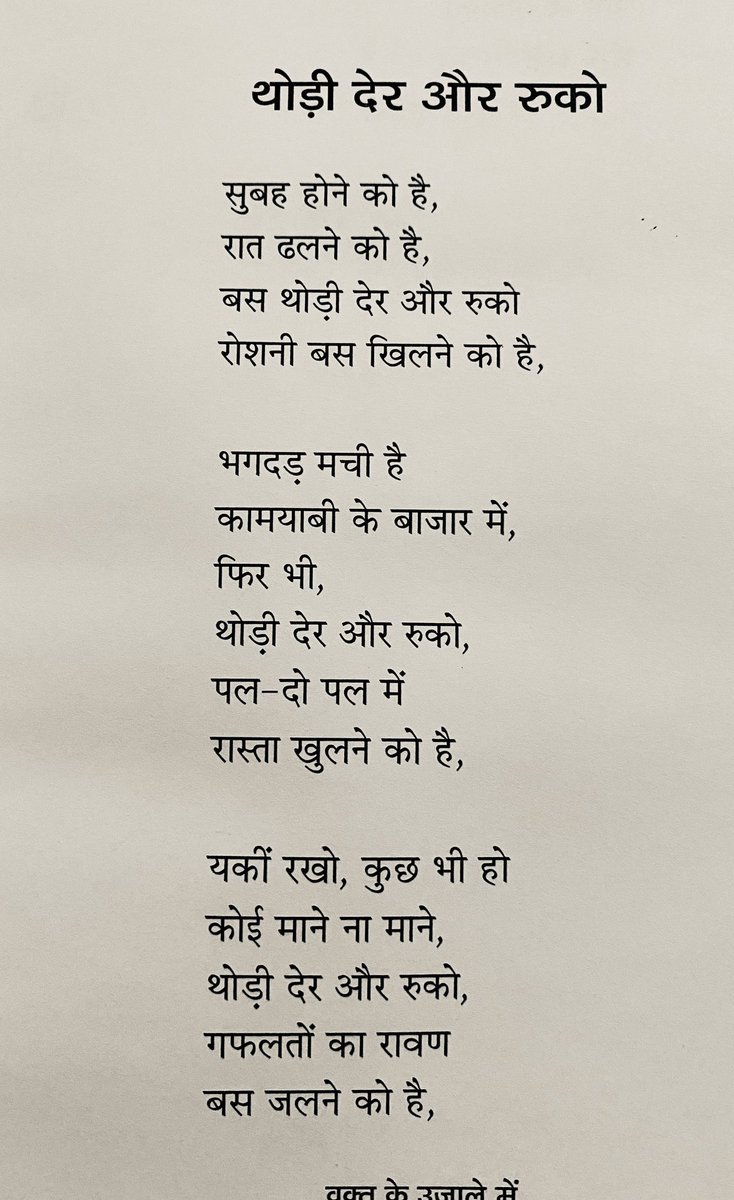 थोड़ी देर और रुको
सुबह होने को है,
रात ढलने को है,
बस थोड़ी देर और रुको
रोशनी बस खिलने को है,
भगदड़ मची है
कामयाबी के बाजार में,
फिर भी,
थोड़ी देर और रुको,
पल-दो पल में
रास्ता खुलने को है,
यकीं रखो, कुछ भी हो
कोई माने ना माने,
थोड़ी देर और रुको,
गफलतों का रावण
बस जलने को है,
वक्त के उजाले में